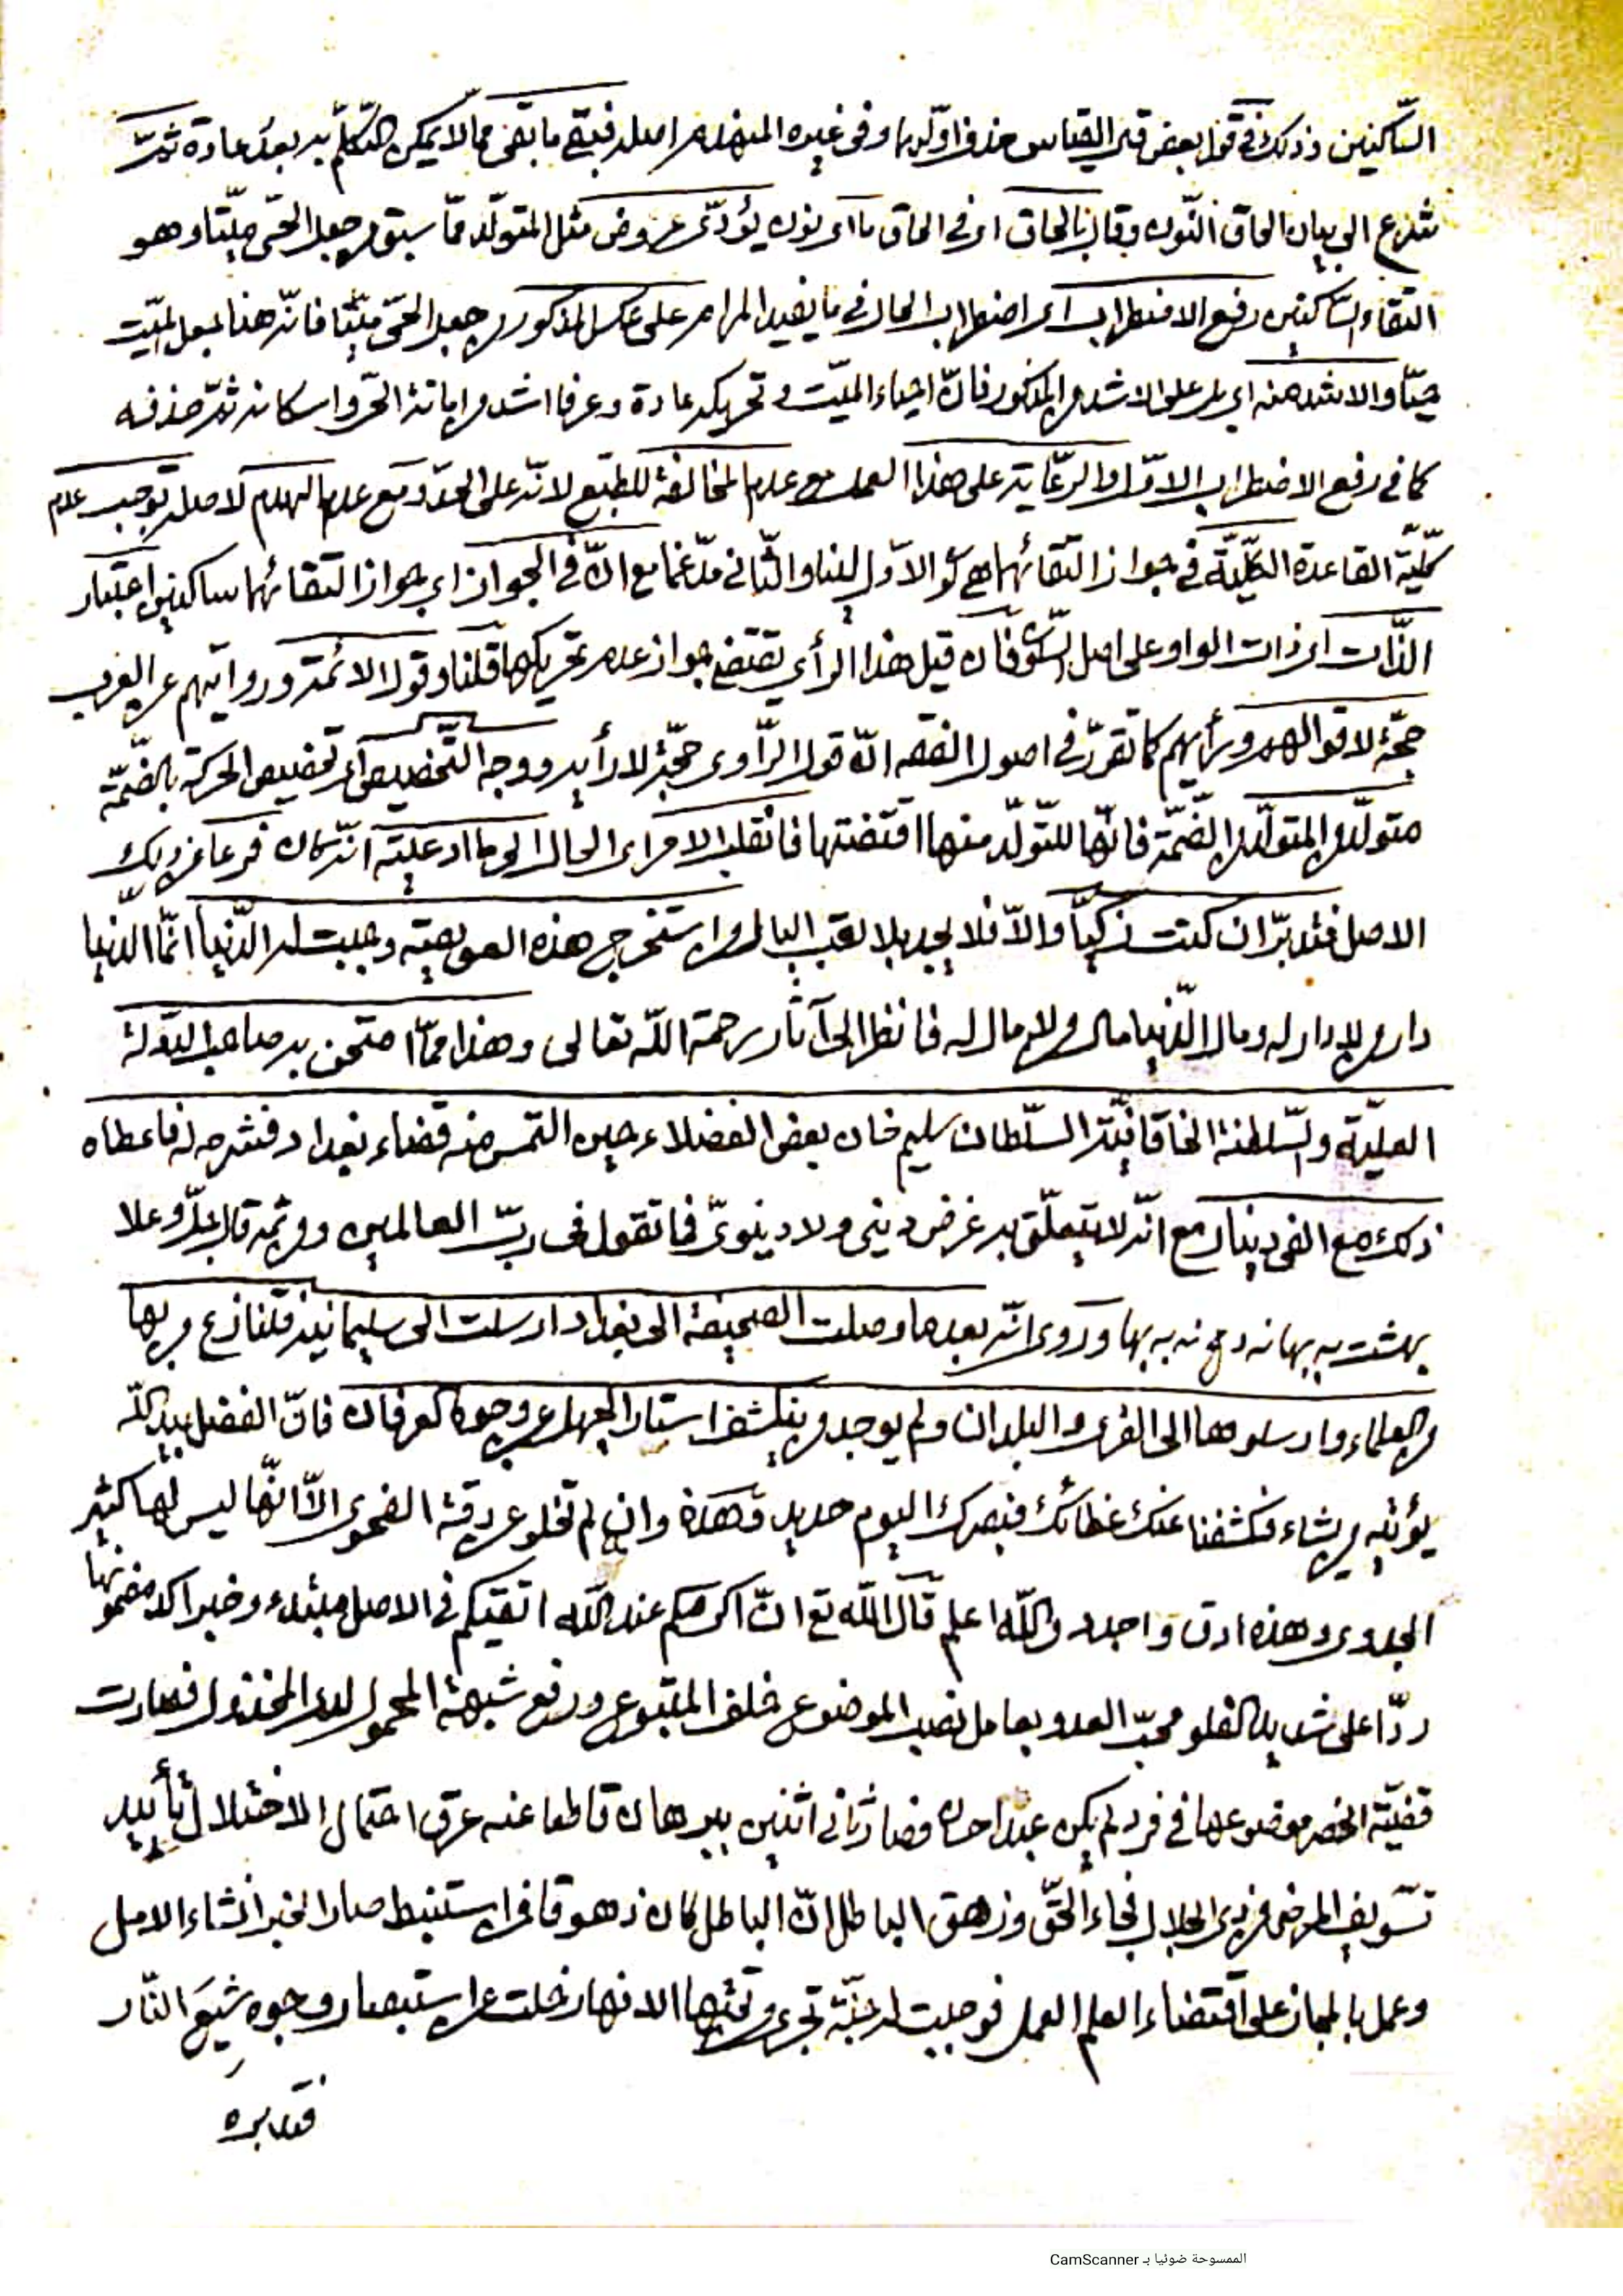 السّاكنين وذلك في قول بعض قيل القياس حذف اولهما وفي غيره المنهدم اصله فيبقى ما بقى مما لا يمكن التكلّم به بعد عادة ثمّ
شرع الى بيان الحاق النّون وقال بالحاق اى في الحاق ما اى نون يؤدّى عروض مثل المتولّد ممّا سبق من جعل الحىّ ميّتا وهو
التقاء السّاكنين رفع الاضطراب اى اضطراب الحال في ما يفيد المرام على عكس المذكور من جعل الحىّ ميّتا فانّه هنا لجعل الميّت
حيّا والاشد منه اى بل على الاشد من المذكور فانّ احياء الميّت وتحريكه عادة وعرفا اشد من اماتة الحىّ واسكانه ثمّ حذفه
كما في رفع الاضطراب الاوّل والرعاية على هذا العمل مع عدم المخالفة للطبع لانّه على الحدّ ومع عدم الهدم لاصله توجب عدم
كلّيّة القاعدة الكلّيّة في جواز التقائهما هي كو الاوّل لينا والثّاني مدّغما مع انّ في الجواز اى جواز التقائهما ساكنين اعتبار
الذّات اى ذات الواو على اصل السّكو فان قيل هذا الرأى يقتضى جواز عدم تحريكها قلنا وقول الائمّة وروايتهم عن العرب
حجّة لاقوالهم ورأيهم كما تقرّر في اصول الفقه انّ قول الرّاوى حجّة لا رأيه ووجه التّخصيص اى تخصيص الحركة بالضّمّة
متولّد من المتولّد من الضّمّة فانّها للتّولّد منها اقتضتها فانقلب الامر اى الحال الى ما ادعيته انّه كان فرعا عن ذلك
الاصل فتدبّر ان كنت زكيّا والاّ فلا يجد بلا تعب البال ومن استخرج هذه العويصة وجبت له الدّنيا انّما الدّنيا
دار من لا دار له ومال الدّنيا مال من لا مال له فانظر الى آثار رحمة الله تعالى وهذا ممّا امتحن به صاحب الدّولة
العليّة والسّلطنة الخاقانيّة السّلطان سليم خان بعض الفضلاء حين التمس منه قضاء بغداد فشرحه له فاعطاه
ذلك مع الفى دينار مع انّه لا يتعلّق به غرض دينى ولا دينوىّ فما تقول في ربّ العالمين ومن ثمه قال جلّ وعلا
بهشت به بهانه دهم نه به بها وروى انّه بعد ما وصلت الصحيفة الى بغداد ارسلت الى سليمانيه فتنازع من بها
من العلماء وارسلوها الى القرى والبلدان ولم يوجد من ينكشف استار الجهل عن وجوه العرفان فانّ الفضل بيد الله
يؤتيه من يشاء فكشفنا عنك غطائك فبصرك اليوم حديد وهذه وان لم تخلو عن دقة الفحوى الاّ انّها ليس لها كثير
الجدوى وهذه ادق واجد والله اعلم قال الله تع انّ اكرمكم عند الله اتقيكم في الاصل مبتدء وخبر اكد مضمونها
ردّا على شديد الغلو محبّ العدو بعامل نصب الموضوع خلف المتبوع ورفع شبهة المحمول لدى المخذول فصارت
قضيّة الخصم موضوعها في فرد لم يكن عبد احدا فصار ثانى اثنين ببرهان قاطعا عنه عرق احتمال الاختلال بتأييد
تسويف المرضى من ذى الجلال فجاء الحقّ وزهق الباطل انّ الباطل كان زهوقا فمن استنبط صار الخبر انشاء الاصل
وعمل بالمجاز على اقتضاء العلم العمل فوجبت له جنّة تجرى من تحتها الانهار خلت عن استبصار وجوه شيع النّار
فتدبره
الممسوحة ضوئيا بـ CamScanner